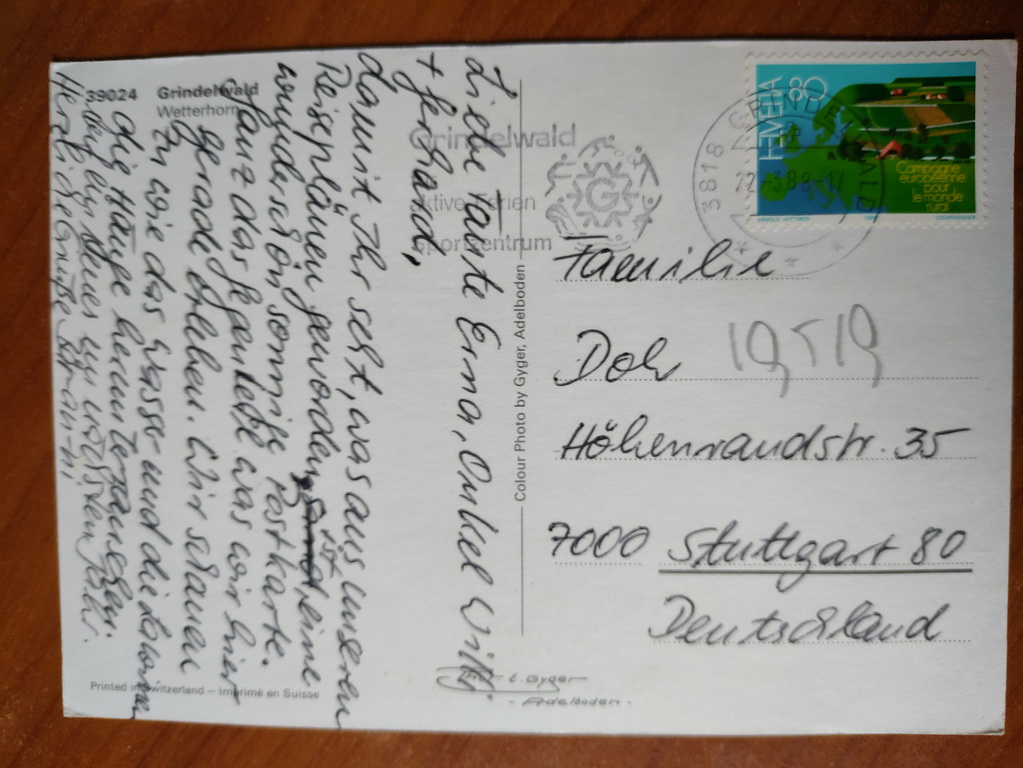 39024 Grindelwald
Wetterhorn
Grindelwald
aktive Ferien
Sportzentrum
G
HELVETIA 80
Campagne
européenne
pour
le monde
rural
COURVOISIER
3818 GRINDELWALD
22.-3.88-17
Liebe Tante Erna, Onkel Willy
+ Gerhard,
damit Ihr seht, was aus unseren
Reiseplänen geworden ist, eine
wunderschön sonnige Postkarte.
Ganz das Gegenteil was wir hier
gerade erleben. Wir schauen
zu wie das Wasser und die Lawinen
die Hänge herunter
Herzliche Grüße
Familie
Doh
19519
Höhenrandstr. 35
7000 Stuttgart 80
Deutschland
Colour Photo by Gyger, Adelboden
E. Gyger
- Adelboden -
Printed in Switzerland – Imprimé en Suisse